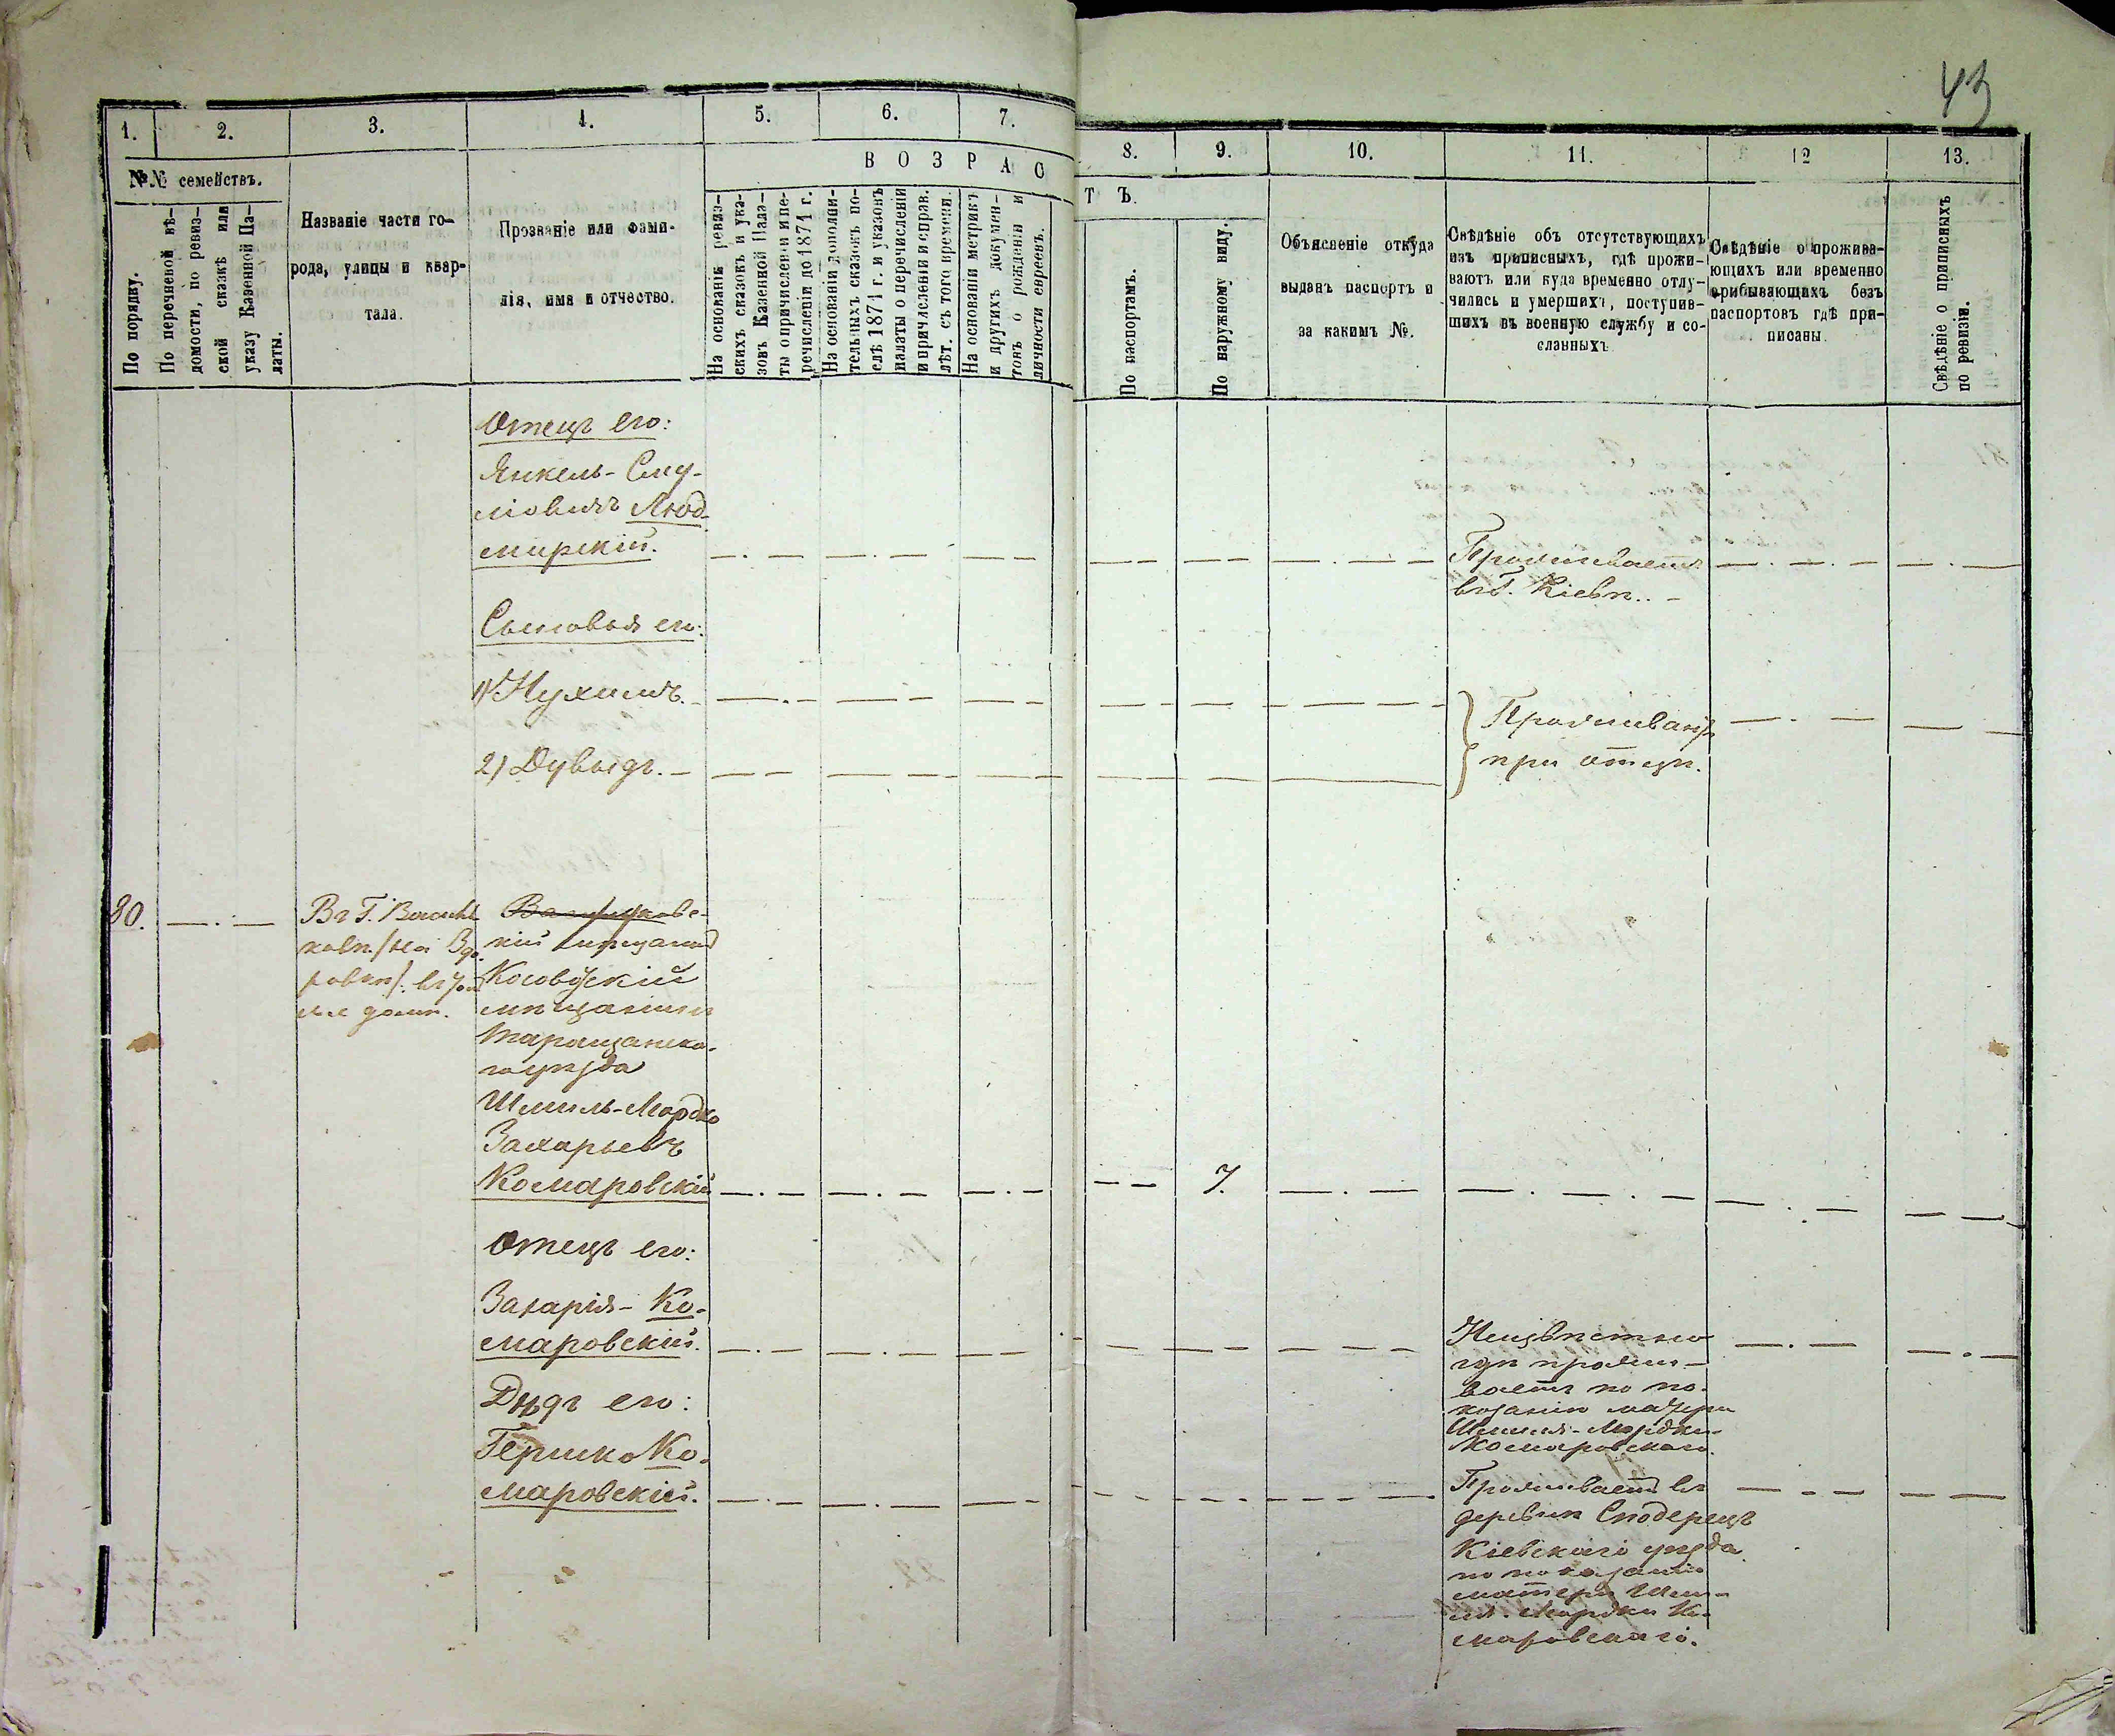 43
1.
2.
3.
4.
5.
6.
7.
8.
9.
10.
11.
12
13.
№№ семействъ.
ВОЗРАС
ТЪ.
По порядку.
По перечневой вѣ-
домости, по ревиз-
ской сказкѣ или
указу Казенной Па-
латы.
Названіе части го-
рода, улицы и квар-
тала.
Прозваніе или фами-
лія, имя и отчество.
На основаніи ревиз-
скихъ сказокъ и ука-
зовъ Казенной Пала-
ты о причисленіи и пе-
речисленіи до 1871 г.
На основаніи дополни-
тельныхъ сказокъ по-
слѣ 1871 г. и указовъ
палаты о перечисленіи
и причисленіи и справ.
лѣт. съ того времени.
На основаніи метрикъ
и другихъ докумен-
товъ о рожденіи и
личности евреевъ.
По паспортамъ.
По наружному виду.
Объясненіе откуда
выданъ паспортъ и
за какимъ №.
Свѣдѣніе объ отсутствующихъ
изъ приписныхъ, гдѣ прожи-
ваютъ или куда временно отлу-
чились и умершихъ, поступив-
шихъ въ военную службу и со-
сланныхъ
Свѣдѣніе о прожива-
ющихъ или временно
прибывающихъ безъ
паспортовъ гдѣ при-
писаны.
Свѣдѣніе о приписныхъ
по ревизіи.
Отецъ его:
Янкель-Сму-
ловичъ Люд-
мирскій.
Проживаетъ
въ Г. Кіевѣ.
Сыновья его:
1) Нухимъ.
2) Дувыдъ.
Проживаютъ
при отцѣ.
80.
Въ Г. Василь
ковѣ /на
домѣ.
кій мѣщанинъ
мѣщанинъ
Таращанска-
го уѣзда
Шмиль-Мордко
Захарьевъ
Комаровскій
7.
Отецъ его:
Захарія-Ко-
маровскій.
Неизвѣстно
гдѣ прожи-
ваетъ по по-
казанію матери
Шмиля-Мордки
Комаровскаго.
Дѣдъ его:
Гершко Ко-
маровскій.
Проживаетъ въ
деревнѣ
Кіевскаго уѣзда
по показанію
матери Шми-
ля-Мордки Ко-
маровскаго.